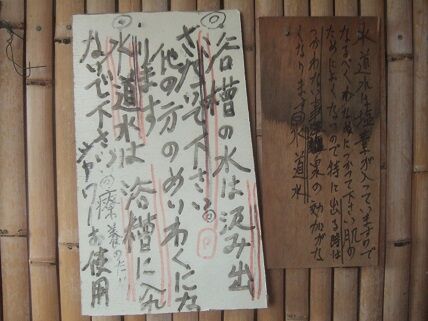 水道水は塩素が入ってますので
つかって下さい肌の
ためによくないので特に出る時は
つかわない事 泉の効力がな
くなります 水道水
◎浴槽の水は汲み出
さないで下さい
他の方のめいわくにな
ります
◎水道水は浴槽に入れ
ないで下さい シャワーお使用
の療養のため